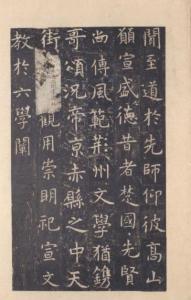 聞至道於先師仰彼高山
願宣盛德昔者楚國先賢
尚傳風範荊州文學猶鐫
哥頌況帝京赤縣之中天
街觀用崇明祀宣文
教於六學闡